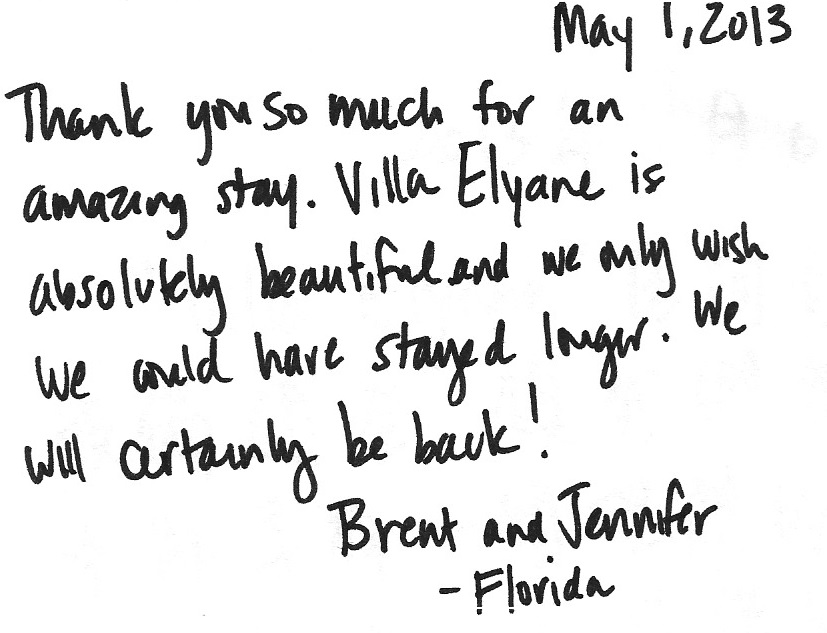 May 1, 2013
Thank you so much for an
amazing stay. Villa Elyane is
absolutely beautiful and we only wish
we could have stayed longer. We
will certainly be back!
Brent and Jennifer
- Florida